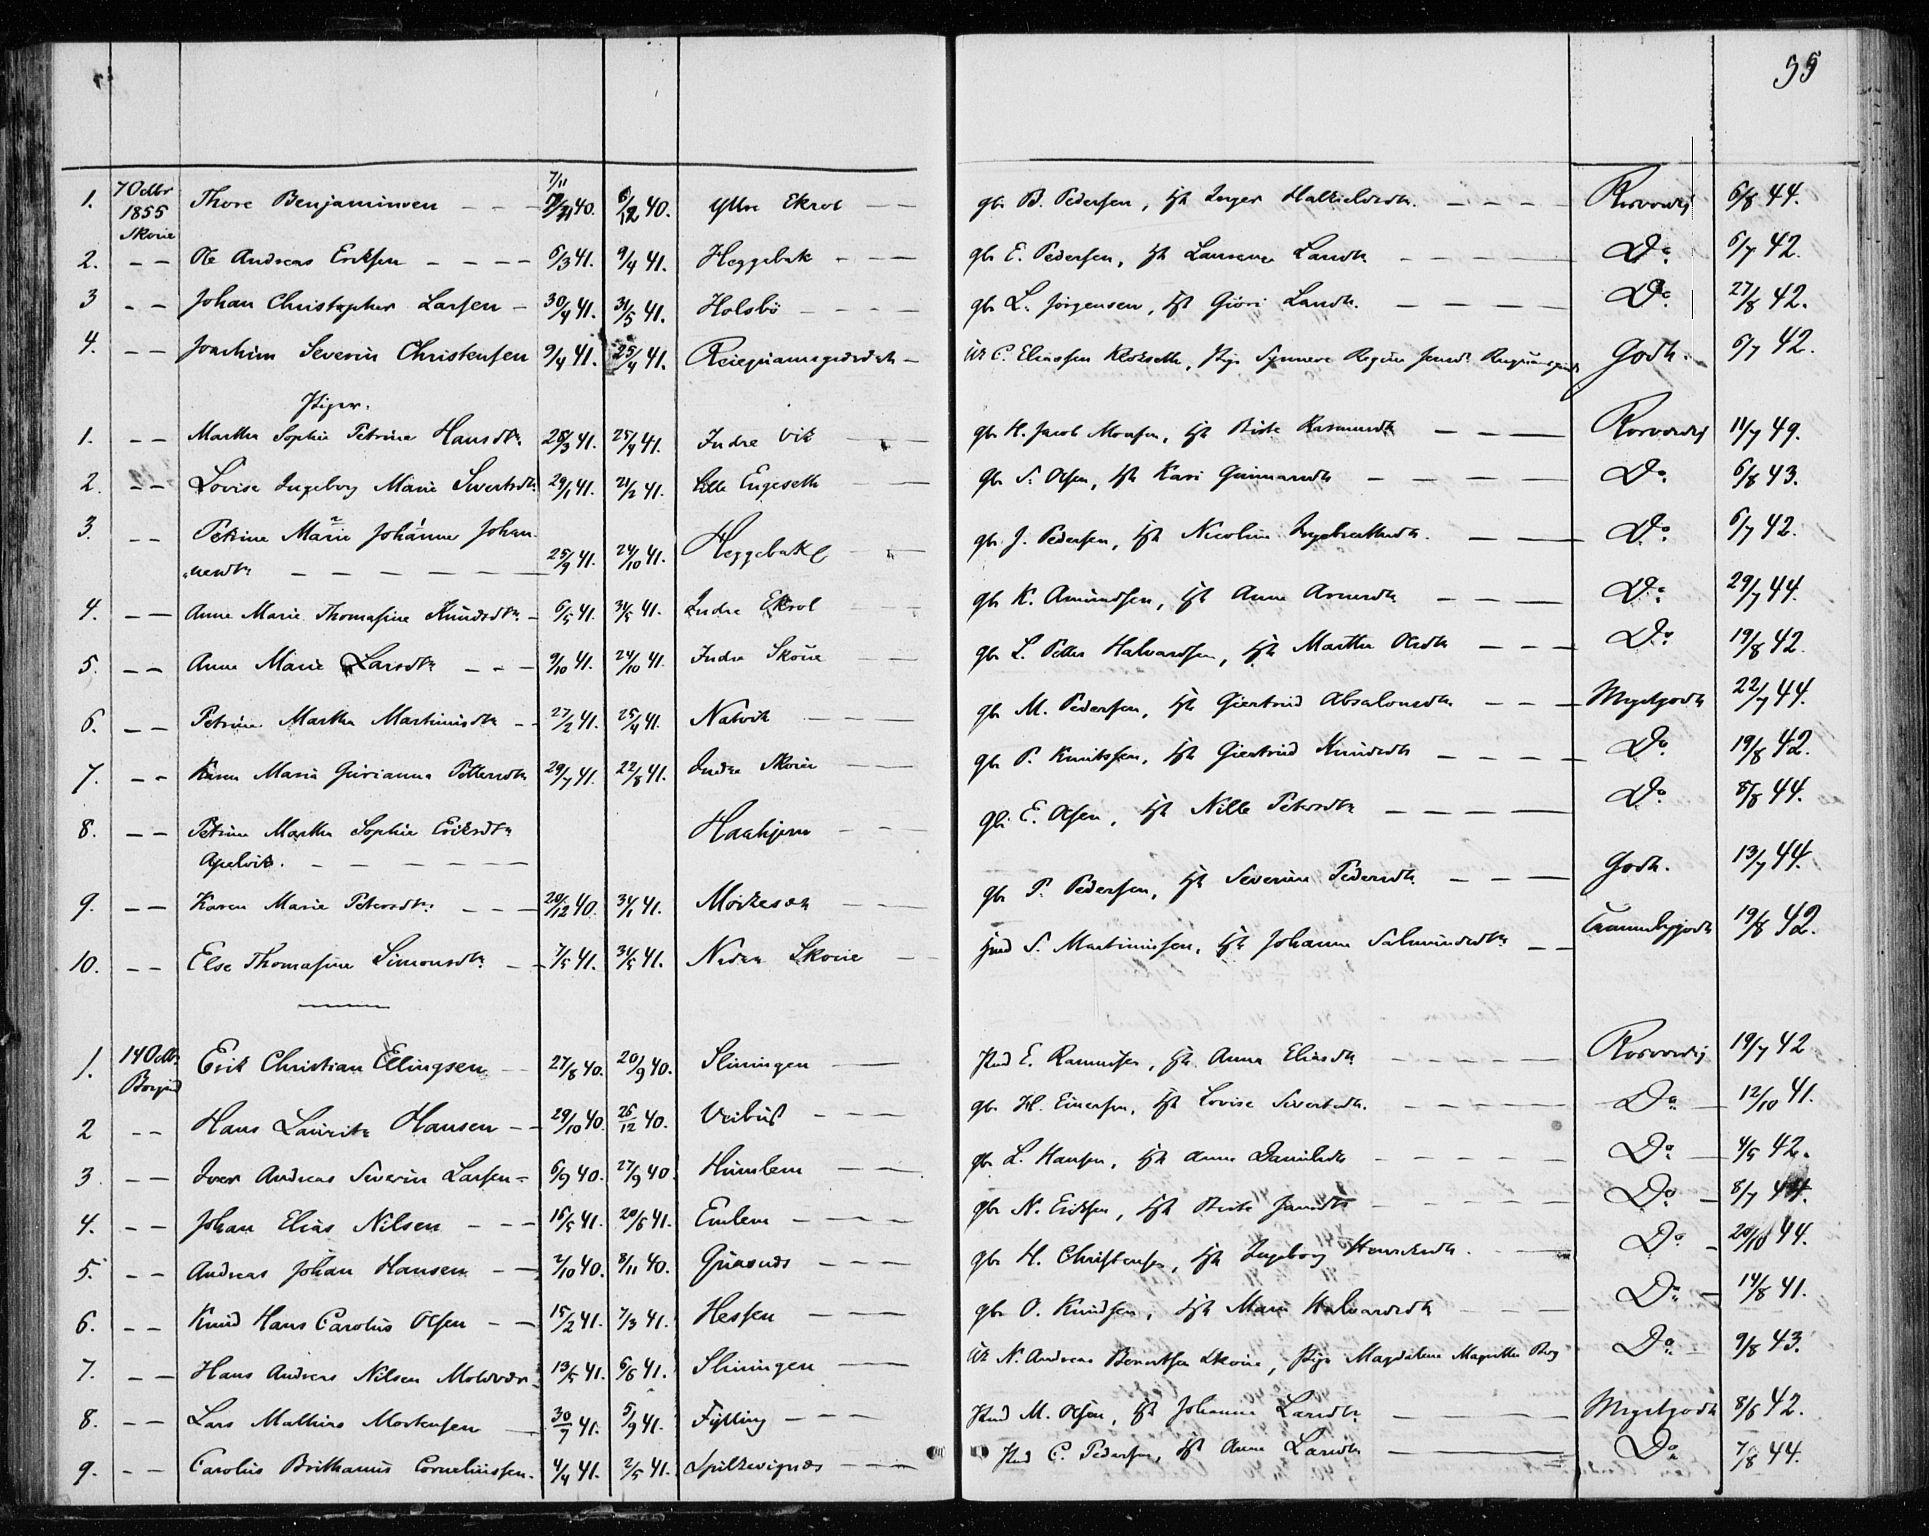 55
1. 7 Octbr 1855 Skouie Thore Benjaminsen — — 7/11 40. 6/12 40. Ytre Ekrol — — gbr B. Pedersen, Hst Inger Halkieldsdtr. — — — — Rosvoldej 6/8 44.
2. — — Ole Andreas Eriksen — — — — 6/3 41. 9/4 41. Heggebak — — — gbr E. Pedersen, Hst Laurense Larsdtr — — — — Do 6/7 42.
3 — — Johan Christopher Larsen — 30/4 41. 31/5 41. Holsbö — — — — gbr L. Jörgensen, Hst Giöri Larsdtr. — — — — Do 27/8 42.
4. — — Joachim Severin Christensen 9/4 41. 25/4 41. — C. Eliassen Klokseth, Pige Synneve Regine Godh. 6/7 42.
Piger.
1. — — Martha Sophie Petrine Hansdtr. 25/3 41. 25/4 41. Indre Vik — — gbr H. Jacob Monsen, Hst Birte Rasmusdtr — — — Rosvoldej 11/7 49.
2. — — Lovise Ingeborg Marie Sivertsdtr. 29/1 41. 21/2 41. Lille Engeseth — — gbr S. Olsen, Hst Kari Gunnarsdtr — — — — — Do 6/8 43.
3. — — Petrine Marie Johanne Johan-
nesdtr — — — — — — 25/9 41. 24/10 41. Heggebak — — gbr J. Pedersen, Hst Nicoline Ingebrethsdtr. — — — Do 6/7 42.
4. — — Anne Marie Thomasine Knudsdtr. — 6/5 41. 31/5 41. Indre Ekrol — — gbr K. Amundsen, Hst Anne Arnesdtr — — — Do 29/7 44.
5 — — Anne Marie Larsdtr — — — 9/10 41. 24/10 41. Indre Skoue — — gbr L. Petter Halvardsen, Hst Marthe Olsdtr — — — Do 19/8 42.
6. — — Petrine Martha Martinusdtr — — 27/2 41. 25/4 41. Natvik — — gbr M. Pedersen, Hst Giertrud Absalonsdtr — — — Mgelgodh 22/7 44.
7. — — Karen Maria Gurianna Pettersdtr 29/7 41. 22/8 41. Indre Skouie — — gbr P. Knutssen, Hst Giertrud Knudsdtr — — — — Do 19/8 42.
8. — — Petrine Martha Sophie Eriksdtr
Apelvik. — — — — — Haahjem — — gbr E. Olsen, Hst Nille Petersdtr — — — — Do 8/8 44.
9. — — Karen Marie Petersdtr: — — — 20/12 40. 31/1 41. — — gbr P. Pedersen, Hst Severine Pedersdtr — — — Godh. 13/7 44.
10. — — Else Thomasine Simonsdtr. — — 7/5 41. 31/5 41. Nedre Skouie — — S. Martinussen, Hst Johanne Salmundsdtr — — 19/8 42.
1. 14 Octbr. Borgund Erik Christian Ellingsen — 27/8 40. 20/9 40. Slinningen — — Hmd E. Rasmussen, Hst Anna Eliasdtr — — — — — Rosvoldej 19/7 42
2 — — Hans Lauritz Hansen — — 29/10 40. 26/12 40. Veibust — — — gbr H. Einersen, Hst Lovise Sivertsdtr. — — — — — Do — 12/10 41.
3 — — Iver Andreas Severin Larsen — 6/9 40. 27/9 40. Humlem — — gbr L. Hansen, Hst Anne Danielsdtr — — — — — Do — 4/5 42.
4. — — Johan Elias Nilsen — — — 15/5 41. 20/6 41. Emlem — — — — gbr N. Eriksen, Hst Birte Jansdtr — — — — Do — 8/7 44.
5. — — Andreas Johan Hansen — — 2/10 40. 8/11 40. — — — gbr H. Christensen, Hst Ingeborg Henriksdtr. — — — Do — 20/10 44.
6. — — Knud Hans Carolus Olsen — — 15/2 41. 7/3 41. Hessen — — — gbr O. Knudsen, Hst Marie Halvardsdtr — — — Do — 14/8 41.
7. — — Hans Andreas Nilsen Moldvær 13/5 41. 6/6 41. Slinningen — — N. Andreas Berentsen Skouie, Pige Magdalena Do — 9/8 43.
8. — — Lars Mathias Mortensen — 30/7 41. 5/9 41. Fylling — — — Hmd M. Olsen, Hst Johanne Larsdtr — — — Mgelgodh 8/6 42.
9. — — Carolus Brithanus Corneliussen. 4/4 41. 2/5 41. Spilkevignæs — — — Hmd C. Pedersen, Hst Anne Larsdtr — — — Do 7/8 44.